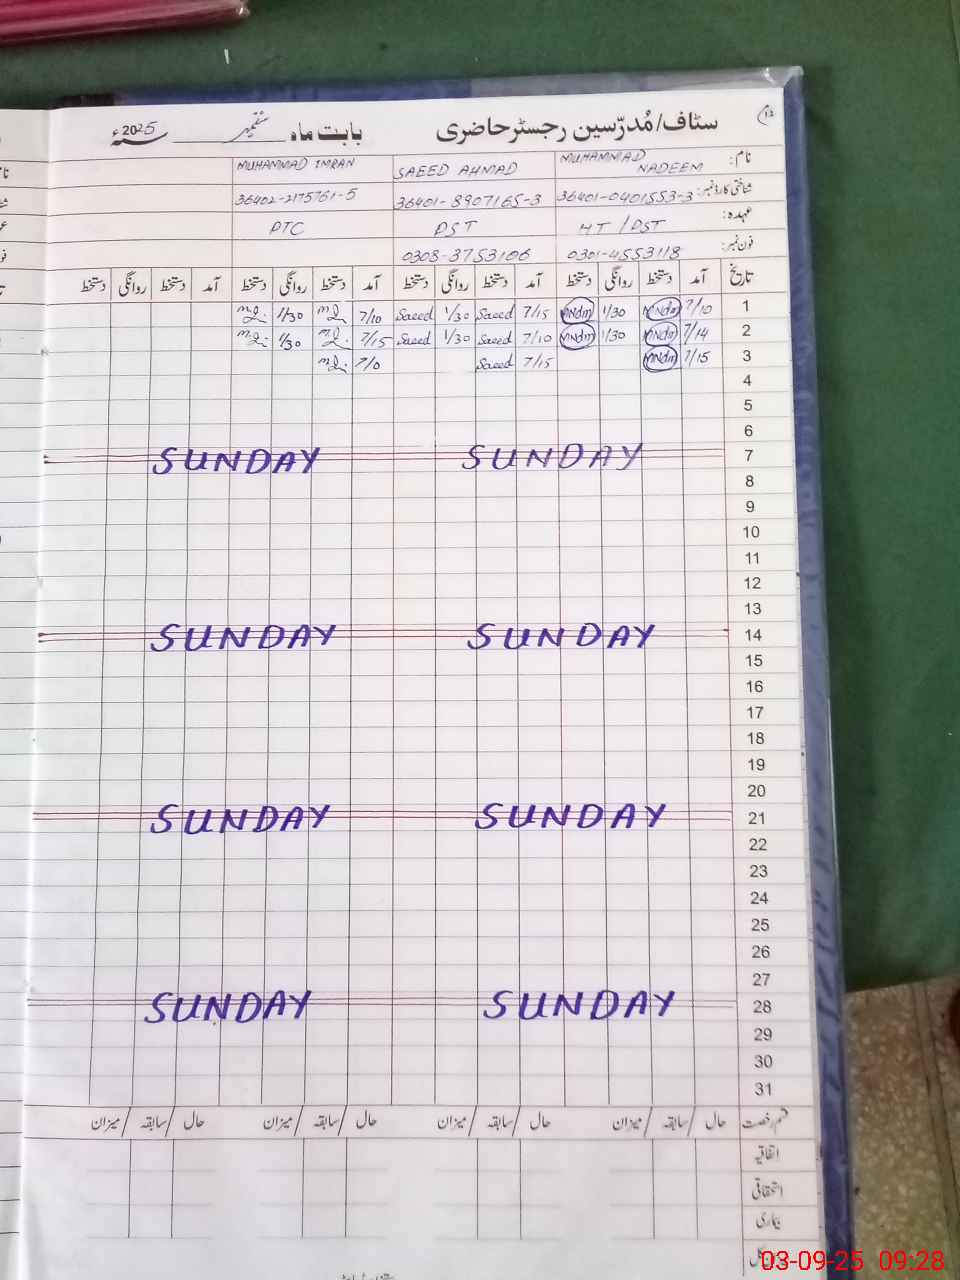 سٹاف/مُدرّسین رجسٹر حاضری بابت ماہ ستمبر سنہ 2025ء
نام: MUHAMMAD NADEEM SAEED AHMAD MUHAMMAD IMRAN
شناختی کارڈ نمبر: 36401-0401553-3 36401-8907165-3 36402-2175761-5
عہدہ: HT/PST PST PTC
فون نمبر: 0301-4553118 0308-3753106
تاریخ آمد دستخط روانگی دستخط آمد دستخط روانگی دستخط آمد دستخط روانگی دستخط آمد دستخط روانگی دستخط
1 7/10 MNdm 1/30 MNdm 7/15 Saeed 1/30 Saeed 7/10 1/30
2 7/14 MNdm 1/30 MNdm 7/10 Saeed 1/30 Saeed 7/15 1/30
3 7/15 MNdm 7/15 Saeed 7/0
4
5
6
7 SUNDAY SUNDAY
8
9
10
11
12
13
14 SUNDAY SUNDAY
15
16
17
18
19
20
21 SUNDAY SUNDAY
22
23
24
25
26
27
28 SUNDAY SUNDAY
29
30
31
قسم رخصت حال / سابقہ / میزان حال / سابقہ / میزان حال / سابقہ / میزان حال / سابقہ / میزان
اتفاقیہ
استحقاقی
بیماری
03-09-25 09:28